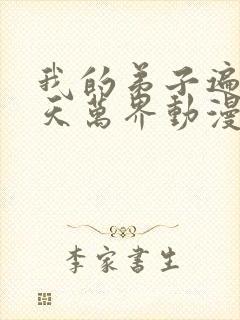 我的弟子遍
天萬界動漫
李家書生